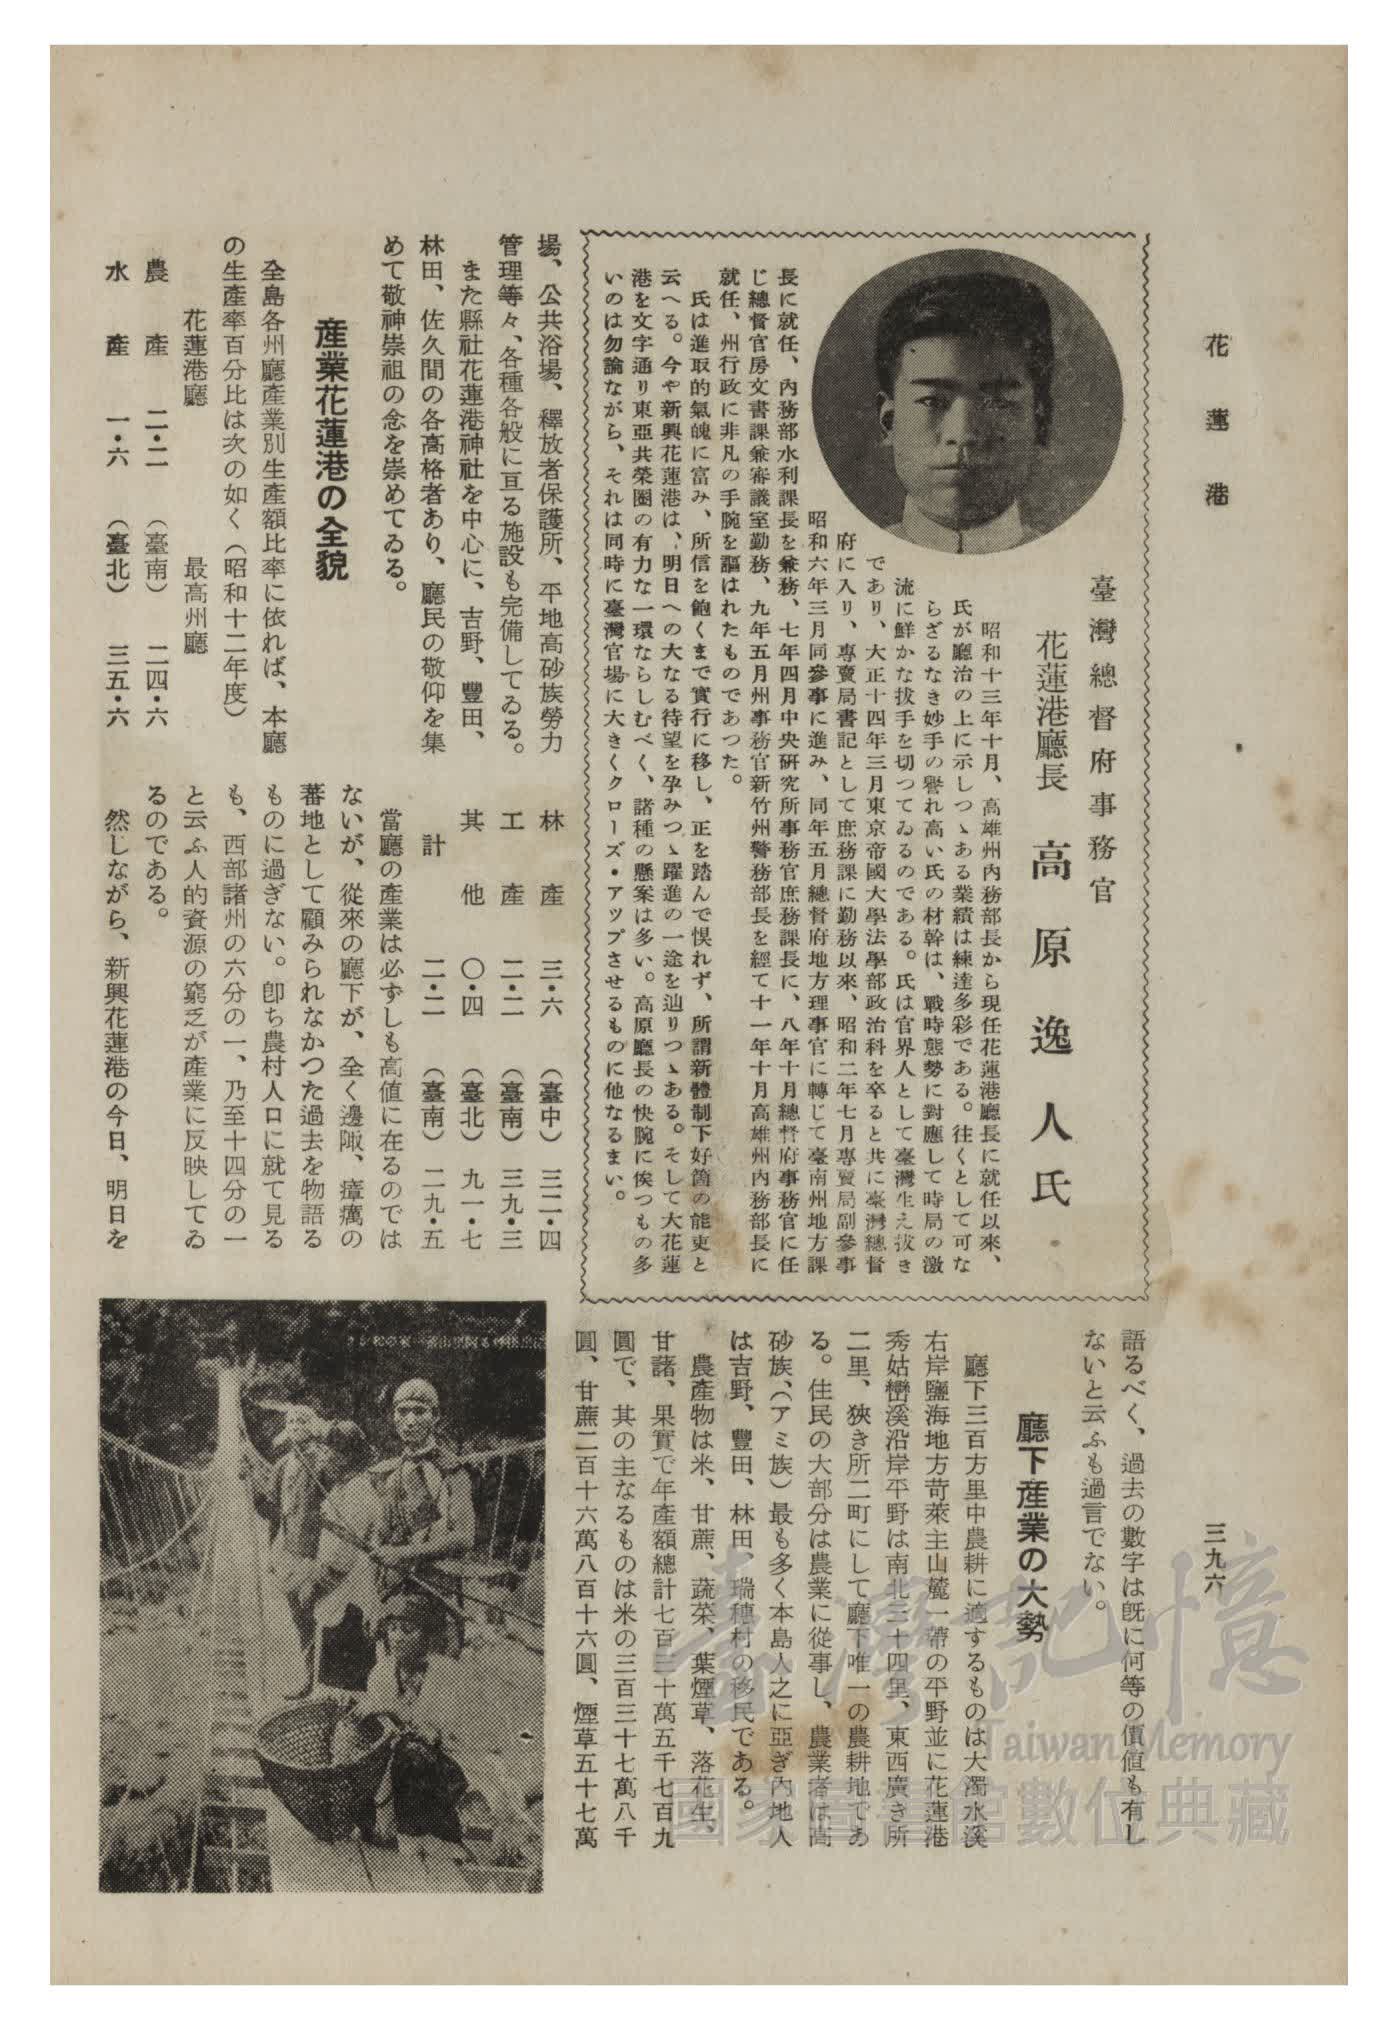 花蓮港
三九六
臺灣總督府事務官
花蓮港廳長 高原逸人氏
昭和十三年十月、高雄州內務部長から現任花蓮港廳長に就任以來、
氏が廳治の上に示しつゝある業績は練達多彩である。往くとして可な
らざるなき妙手の譽れ高い氏の材幹は、戰時態勢に對應して時局の激
流に鮮かな拔手を切つてゐるのである。氏は官界人として臺灣生え拔き
であり、大正十四年三月東京帝國大學法學部政治科を卒ると共に臺灣總督
府に入り、專賣局書記として庶務課に勤務以來、昭和二年七月專賣局副參事
昭和六年三月同參事に進み、同年五月總督府地方理事官に轉じて臺南州地方課
長に就任、內務部水利課長を兼務、七年四月中央硏究所事務官庶務課長に、八年十月總督府事務官に任
じ總督官房文書課兼審議室勤務、九年五月州事務官新竹州警務部長を經て十一年十月高雄州內務部長に
就任、州行政に非凡の手腕を謳はれたものであつた。
氏は進取的氣魄に富み、所信を飽くまで實行に移し、正を踏んで惧れず、所謂新體制下好箇の能吏と
云へる。今や新興花蓮港は、明日への大なる待望を孕みつゝ躍進の一途を辿りつゝある。そして大花蓮
港を文字通り東亞共榮圈の有力な一環ならしむべく、諸種の懸案は多い。高原廳長の快腕に俟つもの多
いのは勿論ながら、それは同時に臺灣官場に大きくクローズ・アツプさせるものに他なるまい。
場、公共浴場、釋放者保護所、平地高砂族勞力
管理等々、各種各般に亘る施設も完備してゐる。
また縣社花蓮港神社を中心に、吉野、豐田、
林田、佐久間の各高格者あり、廳民の敬仰を集
めて敬神崇祖の念を崇めてゐる。
産業花蓮港の全貌
全島各州廳產業別生產額比率に依れば、本廳
の生產率百分比は次の如く（昭和十二年度）
花蓮港廳 最高州廳
農產 二・二 （臺南） 二四・六
水產 一・六 （臺北） 三五・六
林產 三・六 （臺中） 三二・四
工產 二・二 （臺南） 三九・三
其他 〇・四 （臺北） 九一・七
計 二・二 （臺南） 二九・五
當廳の產業は必ずしも高値に在るのでは
ないが、從來の廳下が、全く邊陬、瘴癘の
蕃地として顧みられなかつた過去を物語る
ものに過ぎない。卽ち農村人口に就て見る
も、西部諸州の六分の一、乃至十四分の一
と云ふ人的資源の窮乏が產業に反映してゐ
るのである。
然しながら、新興花蓮港の今日、明日を
語るべく、過去の數字は旣に何等の價値も有し
ないと云ふも過言でない。
廳下産業の大勢
廳下三百方里中農耕に適するものは大濁水溪
右岸鹽海地方苛萊主山麓一帶の平野並に花蓮港
秀姑巒溪沿岸平野は南北三十四里、東西廣き所
二里、狹き所二町にして廳下唯一の農耕地であ
る。住民の大部分は農業に從事し、農業者は高
砂族、（アミ族）最も多く本島人之に亞ぎ內地人
は吉野、豐田、林田、瑞穗村の移民である。
農產物は米、甘蔗、蔬菜、葉煙草、落花生、
甘藷、果實で年產額總計七百三十萬五千七百九
圓で、其の主なるものは米の三百三十七萬八千
圓、甘蔗二百十六萬八百十六圓、煙草五十七萬
臺灣記憶
Taiwan Memory
國家圖書館數位典藏